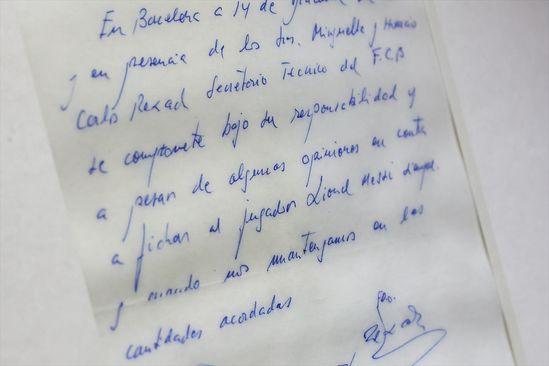 En Barcelona a 14 de
y en presencia de los Sres. Minguella y Horacio
Carlos Rexach Secretario Técnico del F.C.B
se compromete bajo su responsabilidad y
a pesar de algunas opiniones en contra
a fichar al jugador Lionel Messi siempre
y cuando nos mantengamos en las
cantidades acordadas